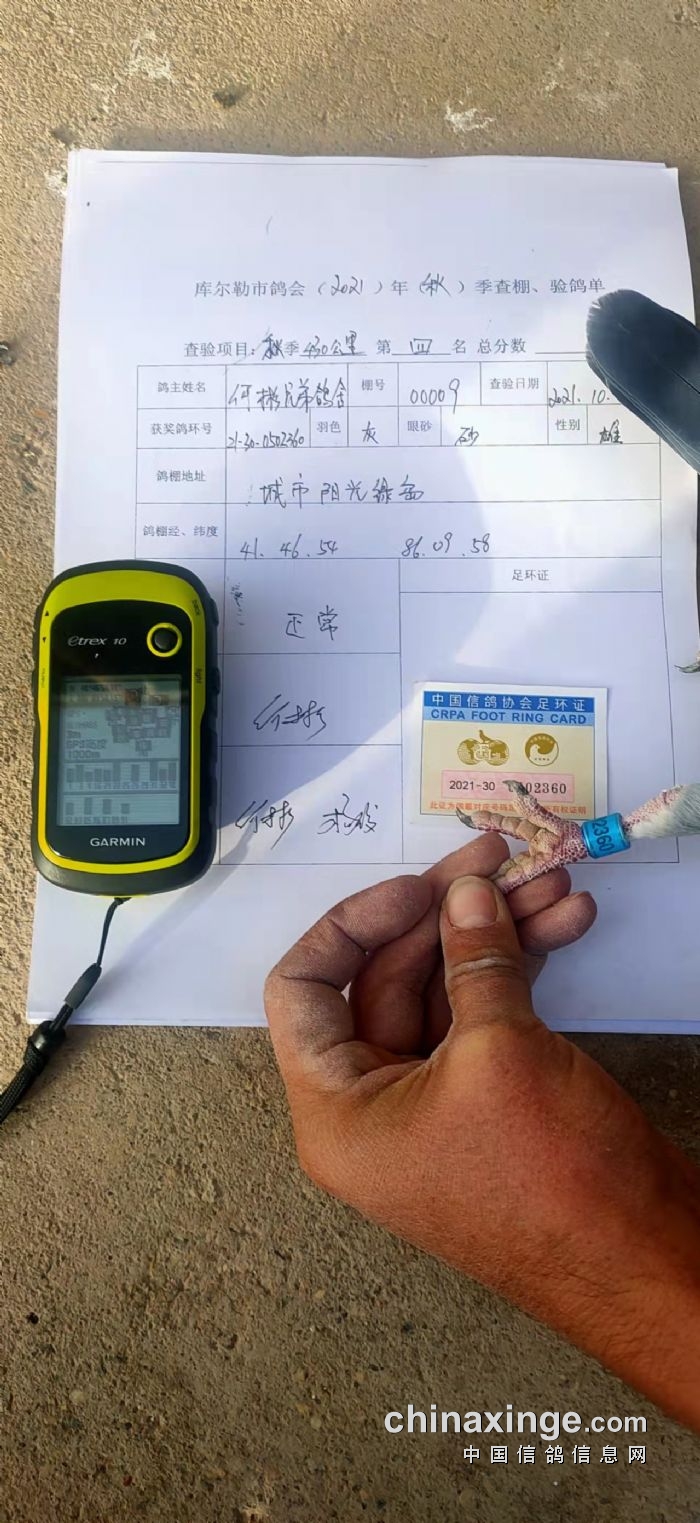 库尔勒市鸽会（2021）年（秋）季查棚、验鸽单
查验项目：秋季430公里 第 四 名 总分数
鸽主姓名 何彬兄弟鸽舍 棚号 00009 查验日期 2021.10.
获奖鸽环号 21-30-0502360 羽色 灰 眼砂 砂 性别 雄
鸽棚地址 城市阳光绿岛
鸽棚经、纬度 41.46.54 86.09.58
足环证
正常
中国信鸽协会足环证
CRPA FOOT RING CARD
2021-30 02360
此证为佩戴对应号码足
有权证明
2360
etrex 10
light
3m
GPS
GARMIN
chinaxinge.com
中国信鸽信息网